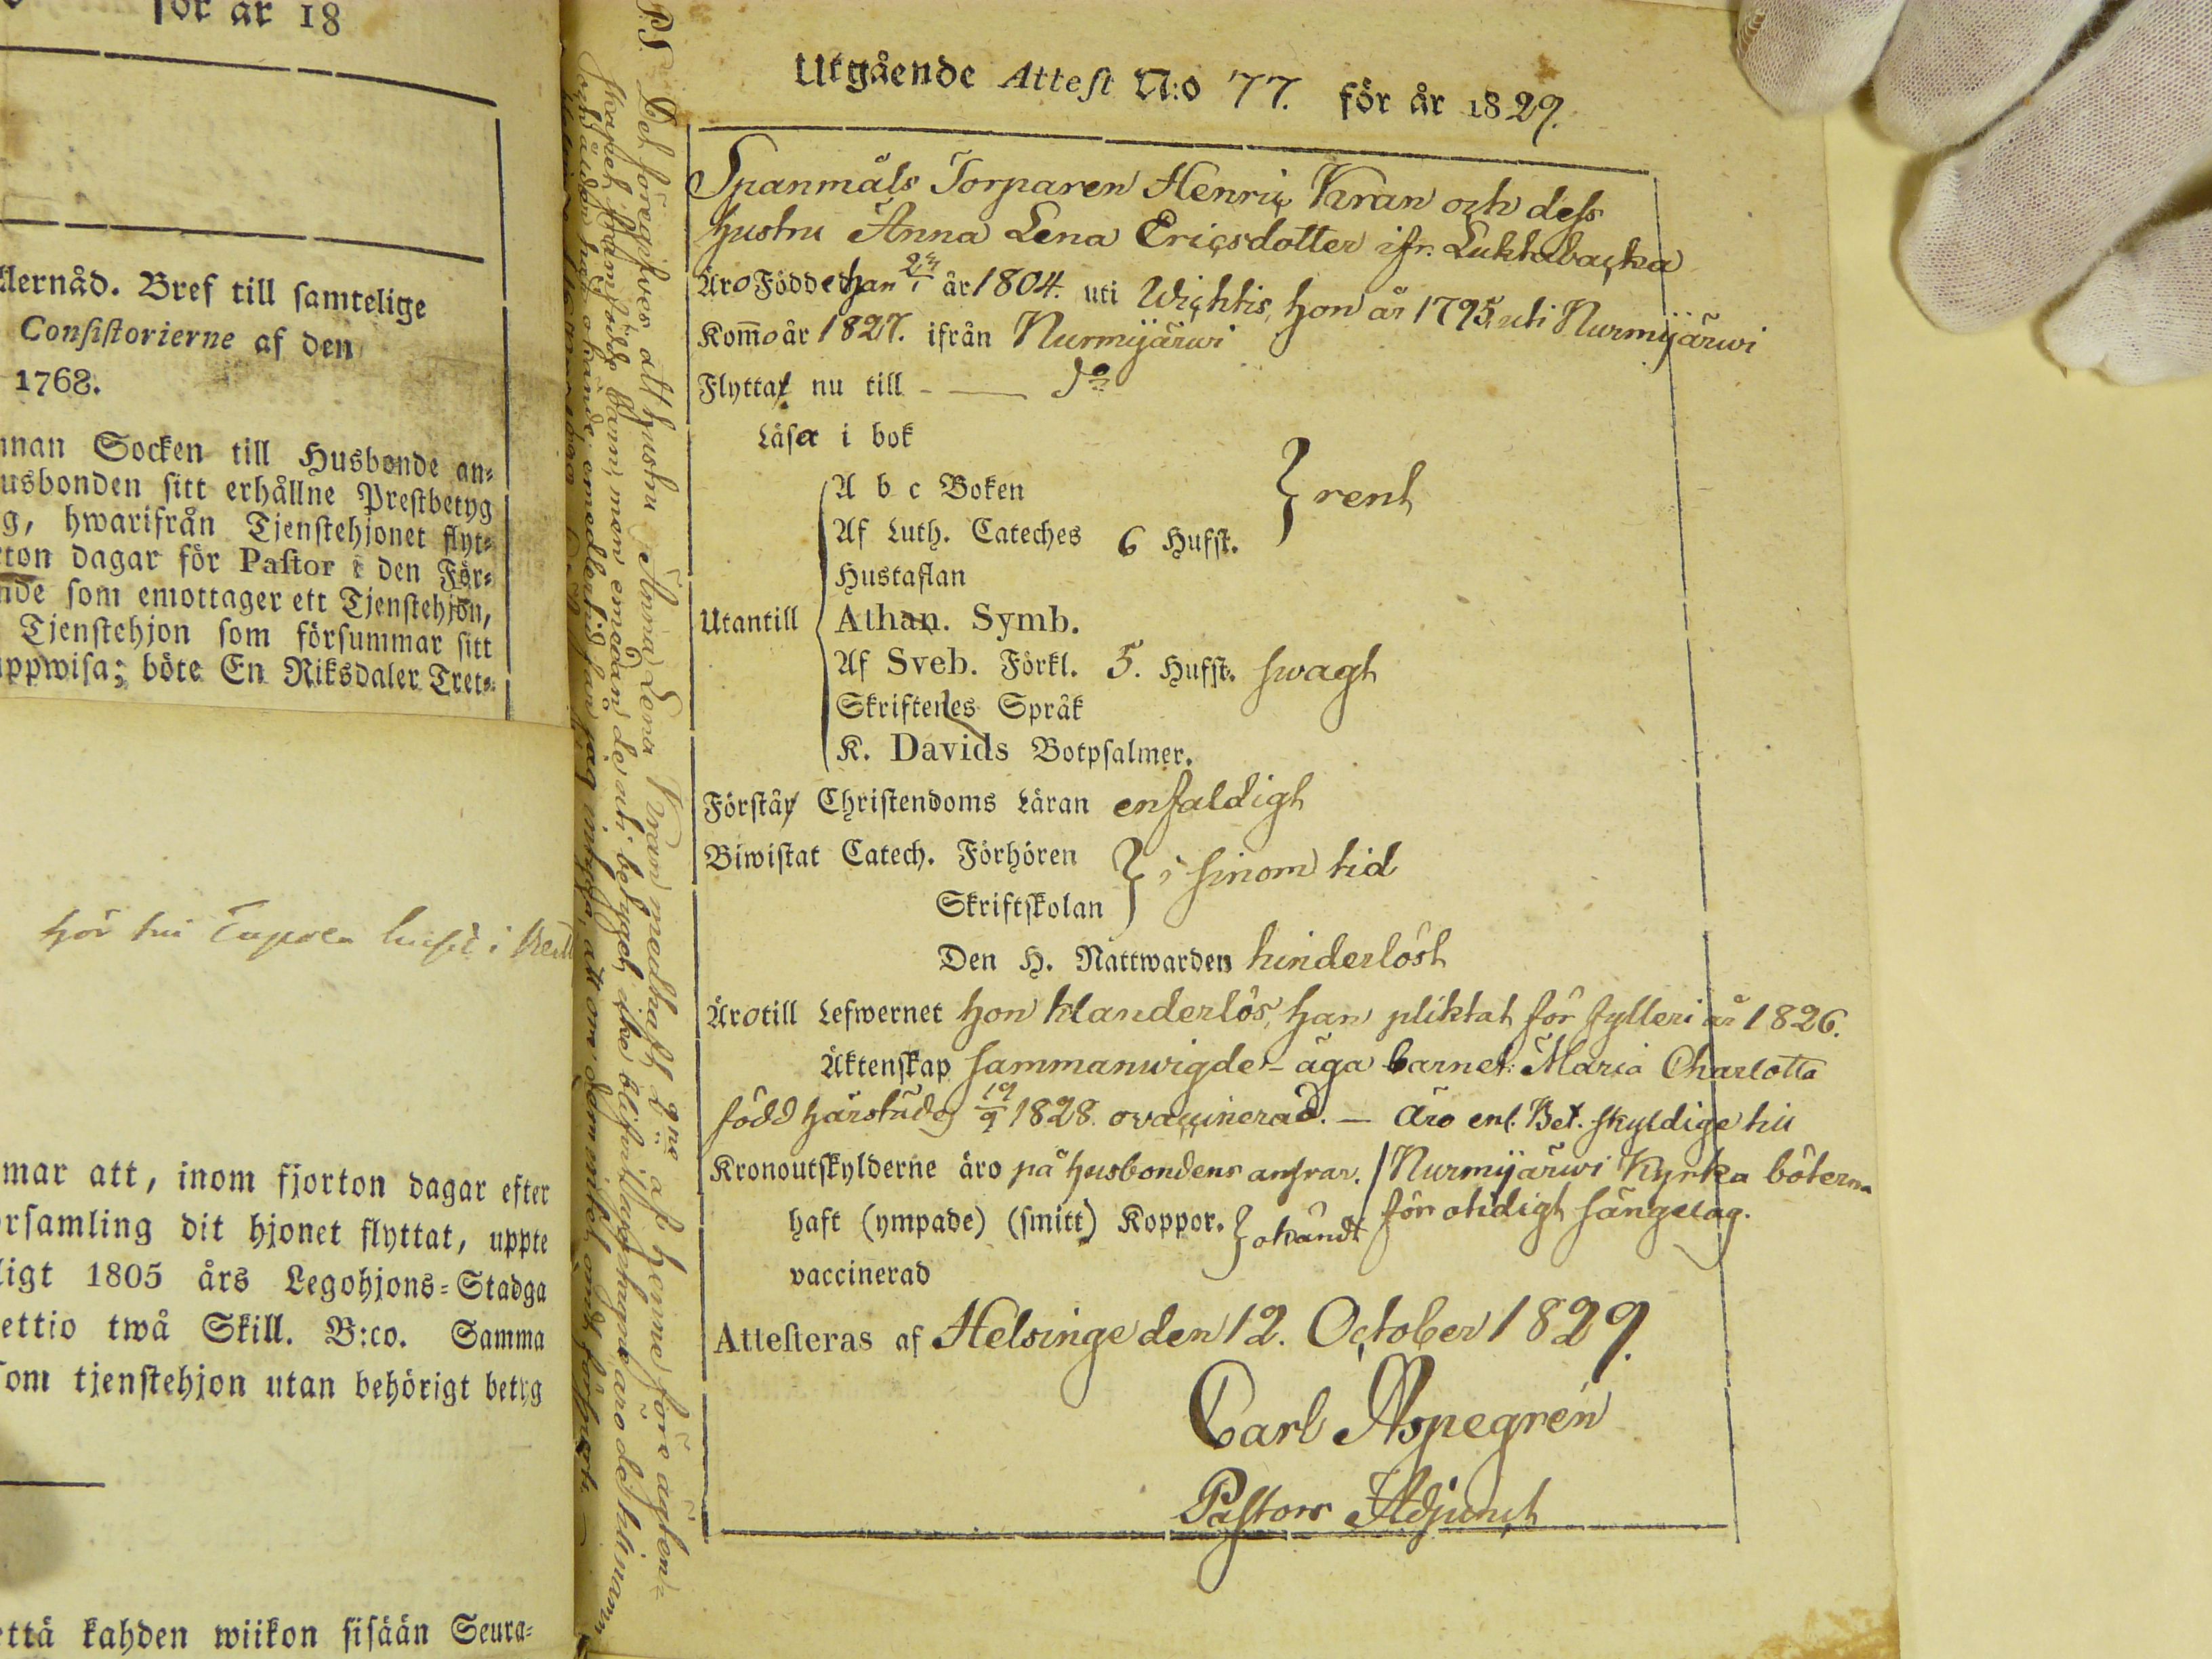 för år 18
llernåd. Bref till samtelige
Consistorierne af den
1768.
nnan Socken till Husbonde an-
usbonden sitt erhållne Prestbetyg
g, hwarifrån Tjenstehjonet flyt-
rton dagar för Pastor i den För-
nde som emottager ett Tjenstehjon,
Tjenstehjon som försummar sitt
uppwisa; böte En Riksdaler Tret-
mar att, inom fjorton dagar efter
ersamling dit hjonet flyttat, uppte
ligt 1805 års Legohjons-Stadga
ettio twå Skill. B:co. Samma
som tjenstehjon utan behörigt betyg
että kahden wiikon sisään Seura-
P.S. Det föregifves att hustru Anna Lena Kran medhaft 2:ne af henne före ägten-
skapet framfödde barn, men emedan de uti betyget icke blifvit
att om dem intet
Utgående Attest N:o 77. för år 1829.
Spanmåls Torparen Henric Kran och dess
hustru Anna Lena Ericsdotter ifr. Luktabacka
Äro Födde han 24/1 år 1804. uti Wichtis, hon år 1795, uti Nurmijärwi
Kom̄o år 1827. ifrån Nurmijärwi
Flyttat nu till - — Do
Läsa i bok
A b c Boken } rent
Af Luth. Cateches 6 Hufst.
Hustaflan
Utantill Athan. Symb.
Af Sveb. Förkl. 5. Hufst. swagt
Skriftenes Språk
K. Davids Botpsalmer.
Förstår Christendoms Läran enfaldigt
Biwistat Catech. Förhören } i sinom tid
Skriftskolan
Den H. Nattwarden hinderlöst
Äro till Lefwernet hon klanderlös, han pliktat för fylleri år 1826.
Äktenskap sammanwigde - äga barnet: Maria Charlotta
född härstädes 19/9 1828. ovaccinerad. — äro enl. Bet. skyldige till
Kronoutskylderne äro på husbondens answar. / Nurmijärwi Kyrka böterna
haft (ympade) (smitt) Koppor. } okändt / för otidigt sängelag.
vaccinerad
Attesteras af Helsinge den 12. October 1829.
Carl Aspegrén
Pastors Adjunct